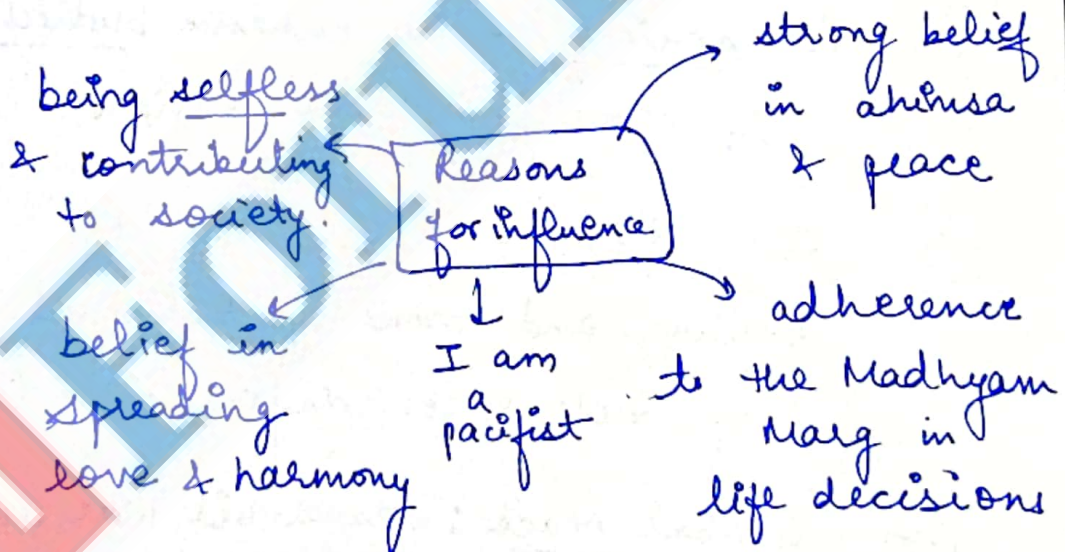 being selfless
& contributing
to society.
Reasons
for influence
strong belief
in ahimsa
& peace
belief in
spreading
love & harmony
I am
a
pacifist
adherence
to the Madhyam
Marg in
life decisions
Forum